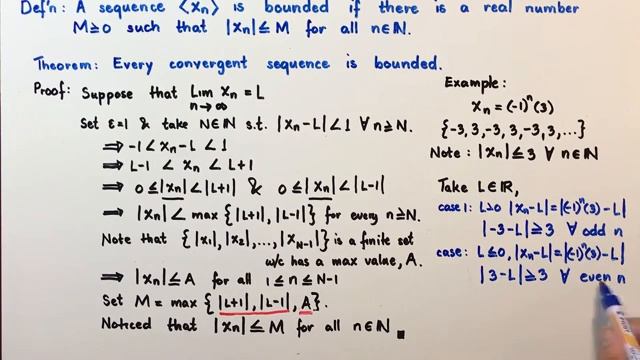 Def'n: A sequence ⟨xn⟩ is bounded if there is a real number
M≥0 such that |xn|≤M for all n∈ℕ.
Theorem: Every convergent sequence is bounded.
Proof: Suppose that Lim xn = L
n→∞
Set ε=1 & take N∈ℕ s.t. |xn-L|<1 ∀ n≥N.
⇒ -1 < xn-L < 1
⇒ L-1 < xn < L+1
⇒ 0≤|xn|<|L+1| & 0≤|xn|<|L-1|
⇒ |xn| < max {|L+1|, |L-1|} for every n≥N.
Note that {|x1|, |x2|, ..., |xN-1|} is a finite set
w/c has a max value, A.
⇒ |xn|≤A for all 1≤n≤N-1
Set M = max {|L+1|, |L-1|, A}.
Noticed that |xn|≤M for all n∈ℕ ■
Example:
xn = (-1)^n (3)
{-3, 3, -3, 3, -3, 3, ...}
Note: |xn|≤3 ∀ n∈ℕ
Take L∈ℝ,
case 1: L>0 |xn-L|=|(-1)^n(3)-L|
|-3-L|≥3 ∀ odd n
case: L≤0, |xn-L|=|(-1)^n(3)-L|
|3-L|≥3 ∀ even n